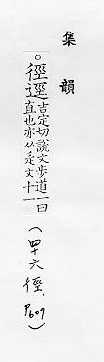 集韻
。徑逕吉定切說文步道一曰
直也亦从辵文十一
(四十六徑, P609)